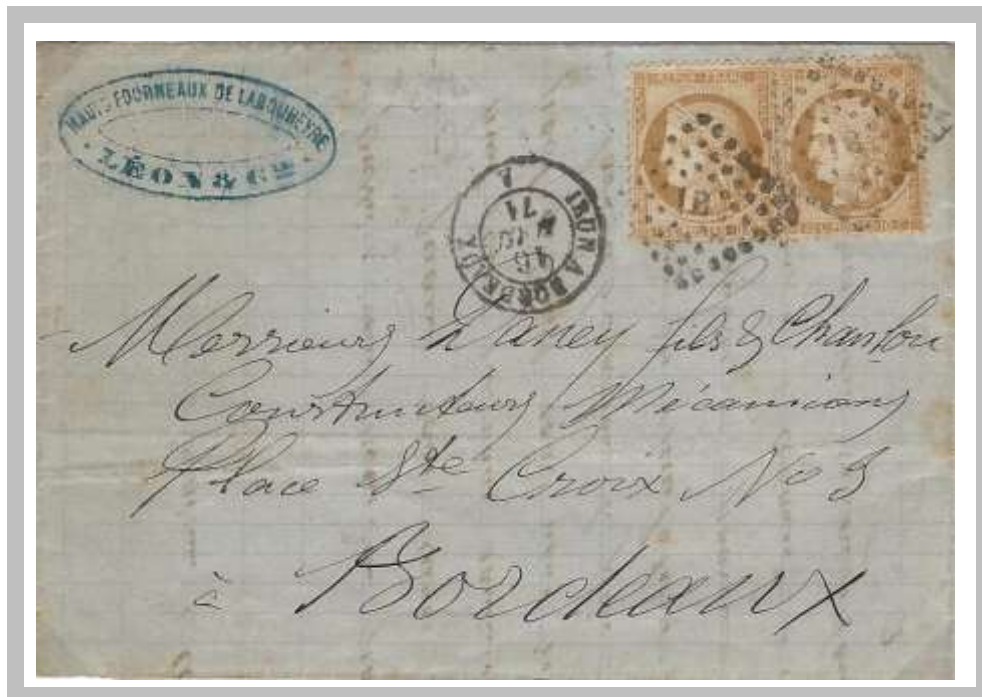 HAUTS FOURNEAUX DE LABOUHEYRE
LÉON & Cie
IRUN A BORDEAUX
A
16
71
IB
Messieurs fils & 
Constructeurs Mécaniciens
Place Ste Croix No
à Bordeaux